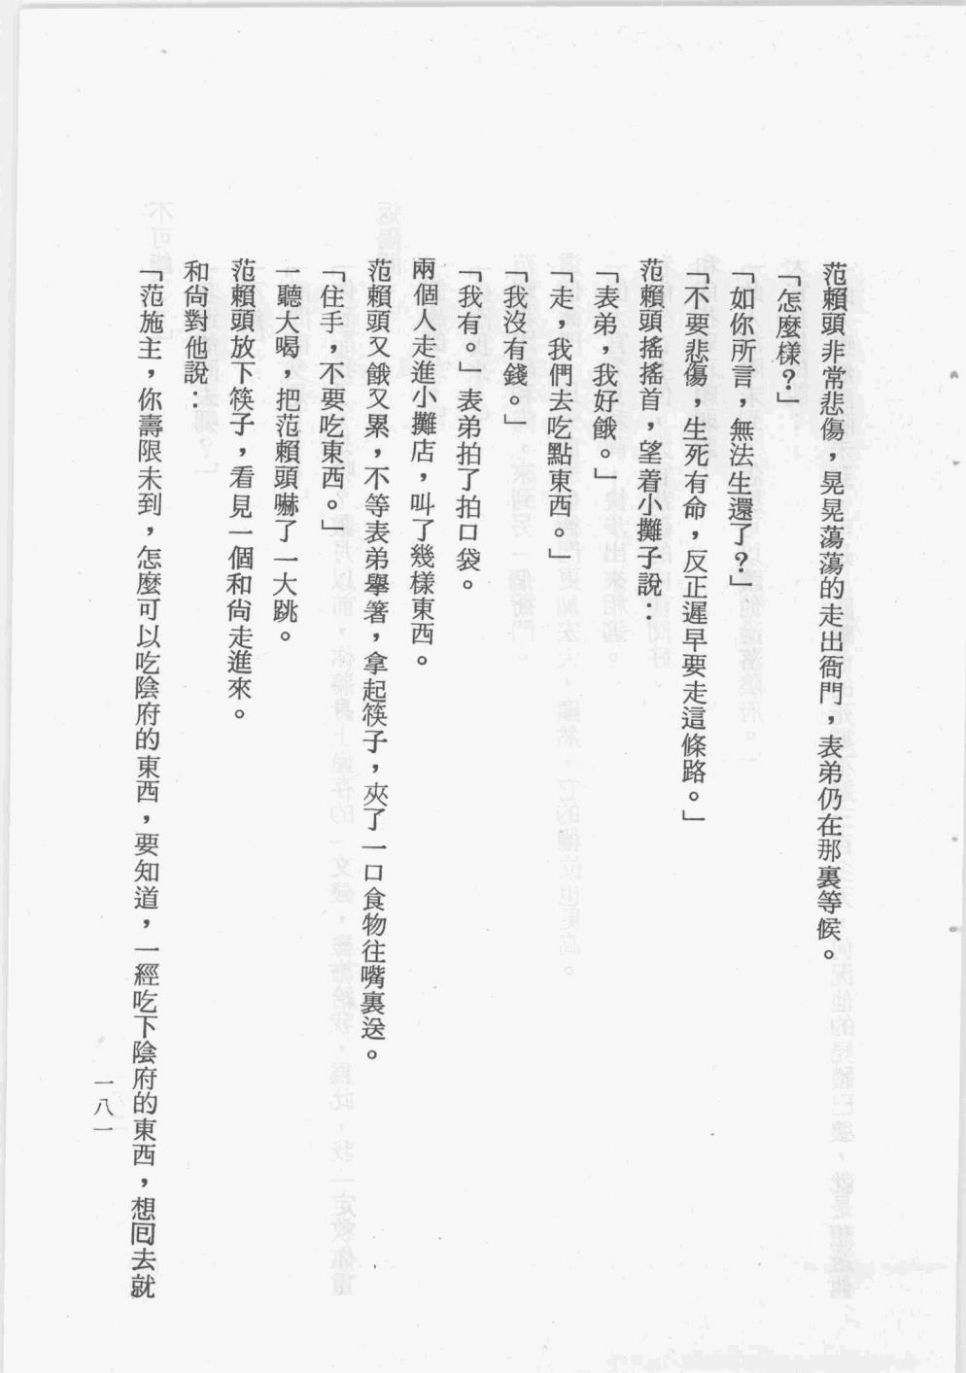 范賴頭非常悲傷，晃晃蕩蕩的走出衙門，表弟仍在那裏等候。
「怎麼樣？」
「如你所言，無法生還了？」
「不要悲傷，生死有命，反正遲早要走這條路。」
范賴頭搖搖首，望着小攤子說：
「表弟，我好餓。」
「走，我們去吃點東西。」
「我沒有錢。」
「我有。」表弟拍了拍口袋。
兩個人走進小攤店，叫了幾樣東西。
范賴頭又餓又累，不等表弟舉箸，拿起筷子，夾了一口食物往嘴裏送。
「住手，不要吃東西。」
一聽大喝，把范賴頭嚇了一大跳。
范賴頭放下筷子，看見一個和尙走進來。
和尙對他說：
「范施主，你壽限未到，怎麼可以吃陰府的東西，要知道，一經吃下陰府的東西，想囘去就
一八一